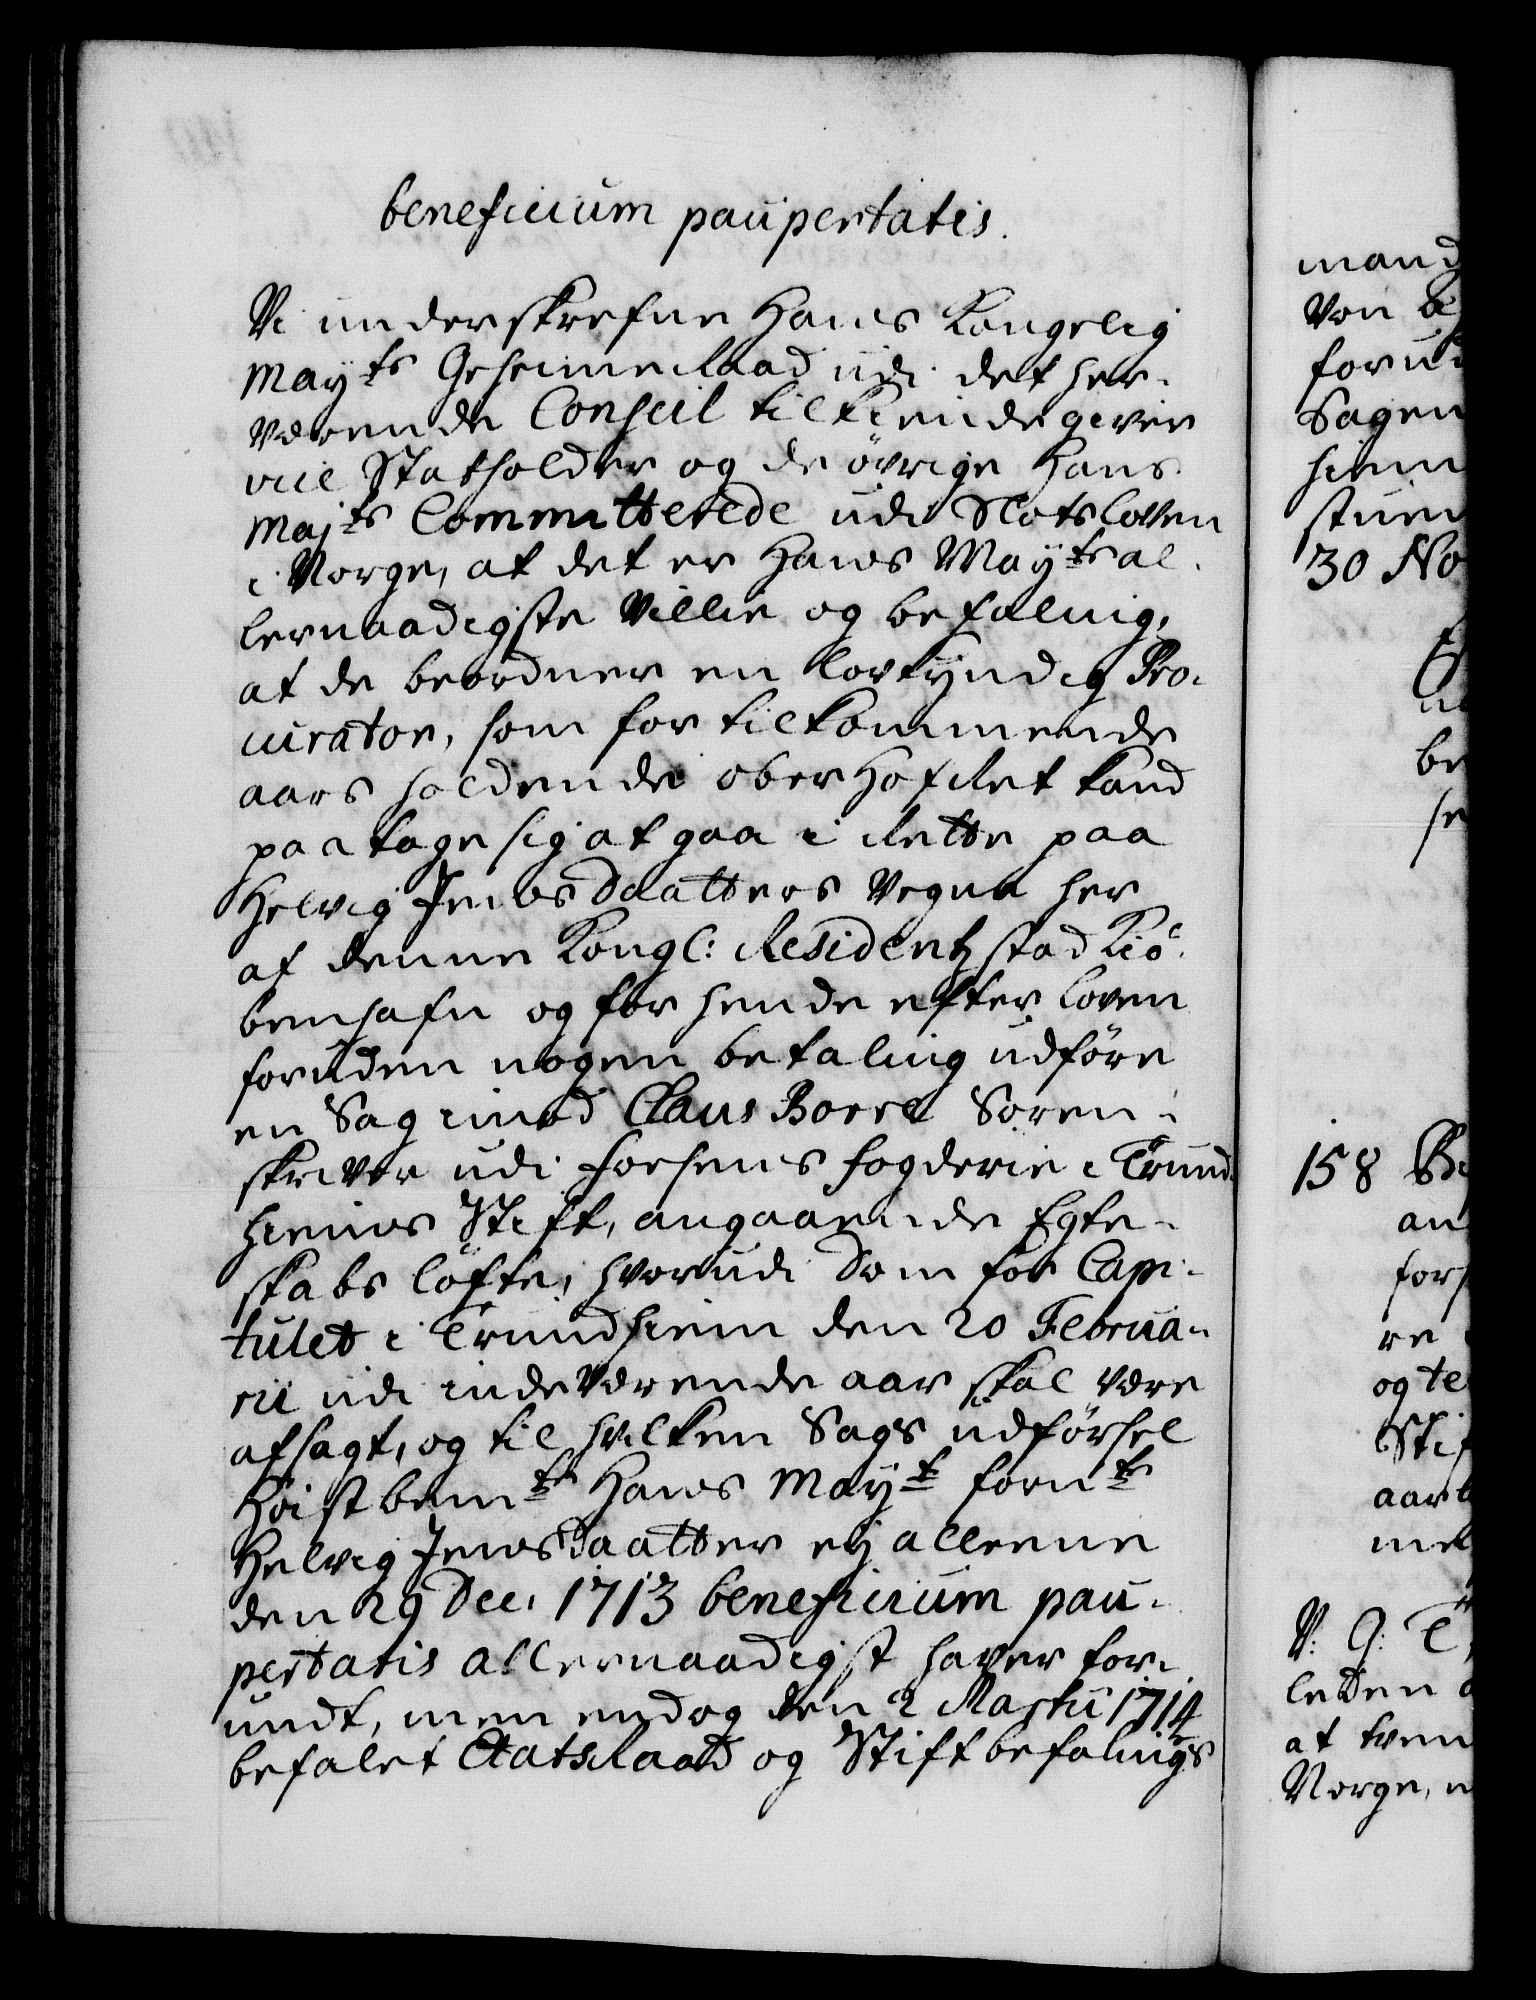 beneficium paupertatis.
Vi underskrefne Hans Kongelig
Mayts Geheimeraad udi det her-
værende Conseil tilkiendegiver
vice Statholder og de øvrige Hans
Majts Committerede udi Slotsloven
i Norge, at det er Hans Mayts al-
lernaadigste Villie og befaling,
at de beordrer en lovkyndig Pro-
curator, som for tilkommende
aars holdende oberHofRet kand
paatage sig at gaa i Rette paa
Helvig Jensdaatters Vegne her
af denne Kongl: Residentz stad Kiö-
benhafn og for hende efter loven
foruden nogen betaling udföre
en Sag imod Claus Borre Soren-
skriver udi Fosens fogderie i Trund-
hiems Stift, angaaende Egte-
skabs löfte, hvorudi Dom for Capi-
tulet i Trundhiem den 20 Februa-
rii udi indeværende aar skal være
afsagt, og til hvilken Sags udförsel
Höistbemte Hans Mayt fornte
Helvig Jensdaatter ej alleene
den 29 Dec. 1713 beneficium pau-
pertatis allernaadigst haver for-
undt, men endog den 2 Martii 1714
befalet Etatsraad og Stiftbefalings
mand
Von
foru
Sagen
hiem
stuen
30 No
be
se
158
an
fors
re
og te
Stif
aar
V: G: T
leden
at tven
Norge,